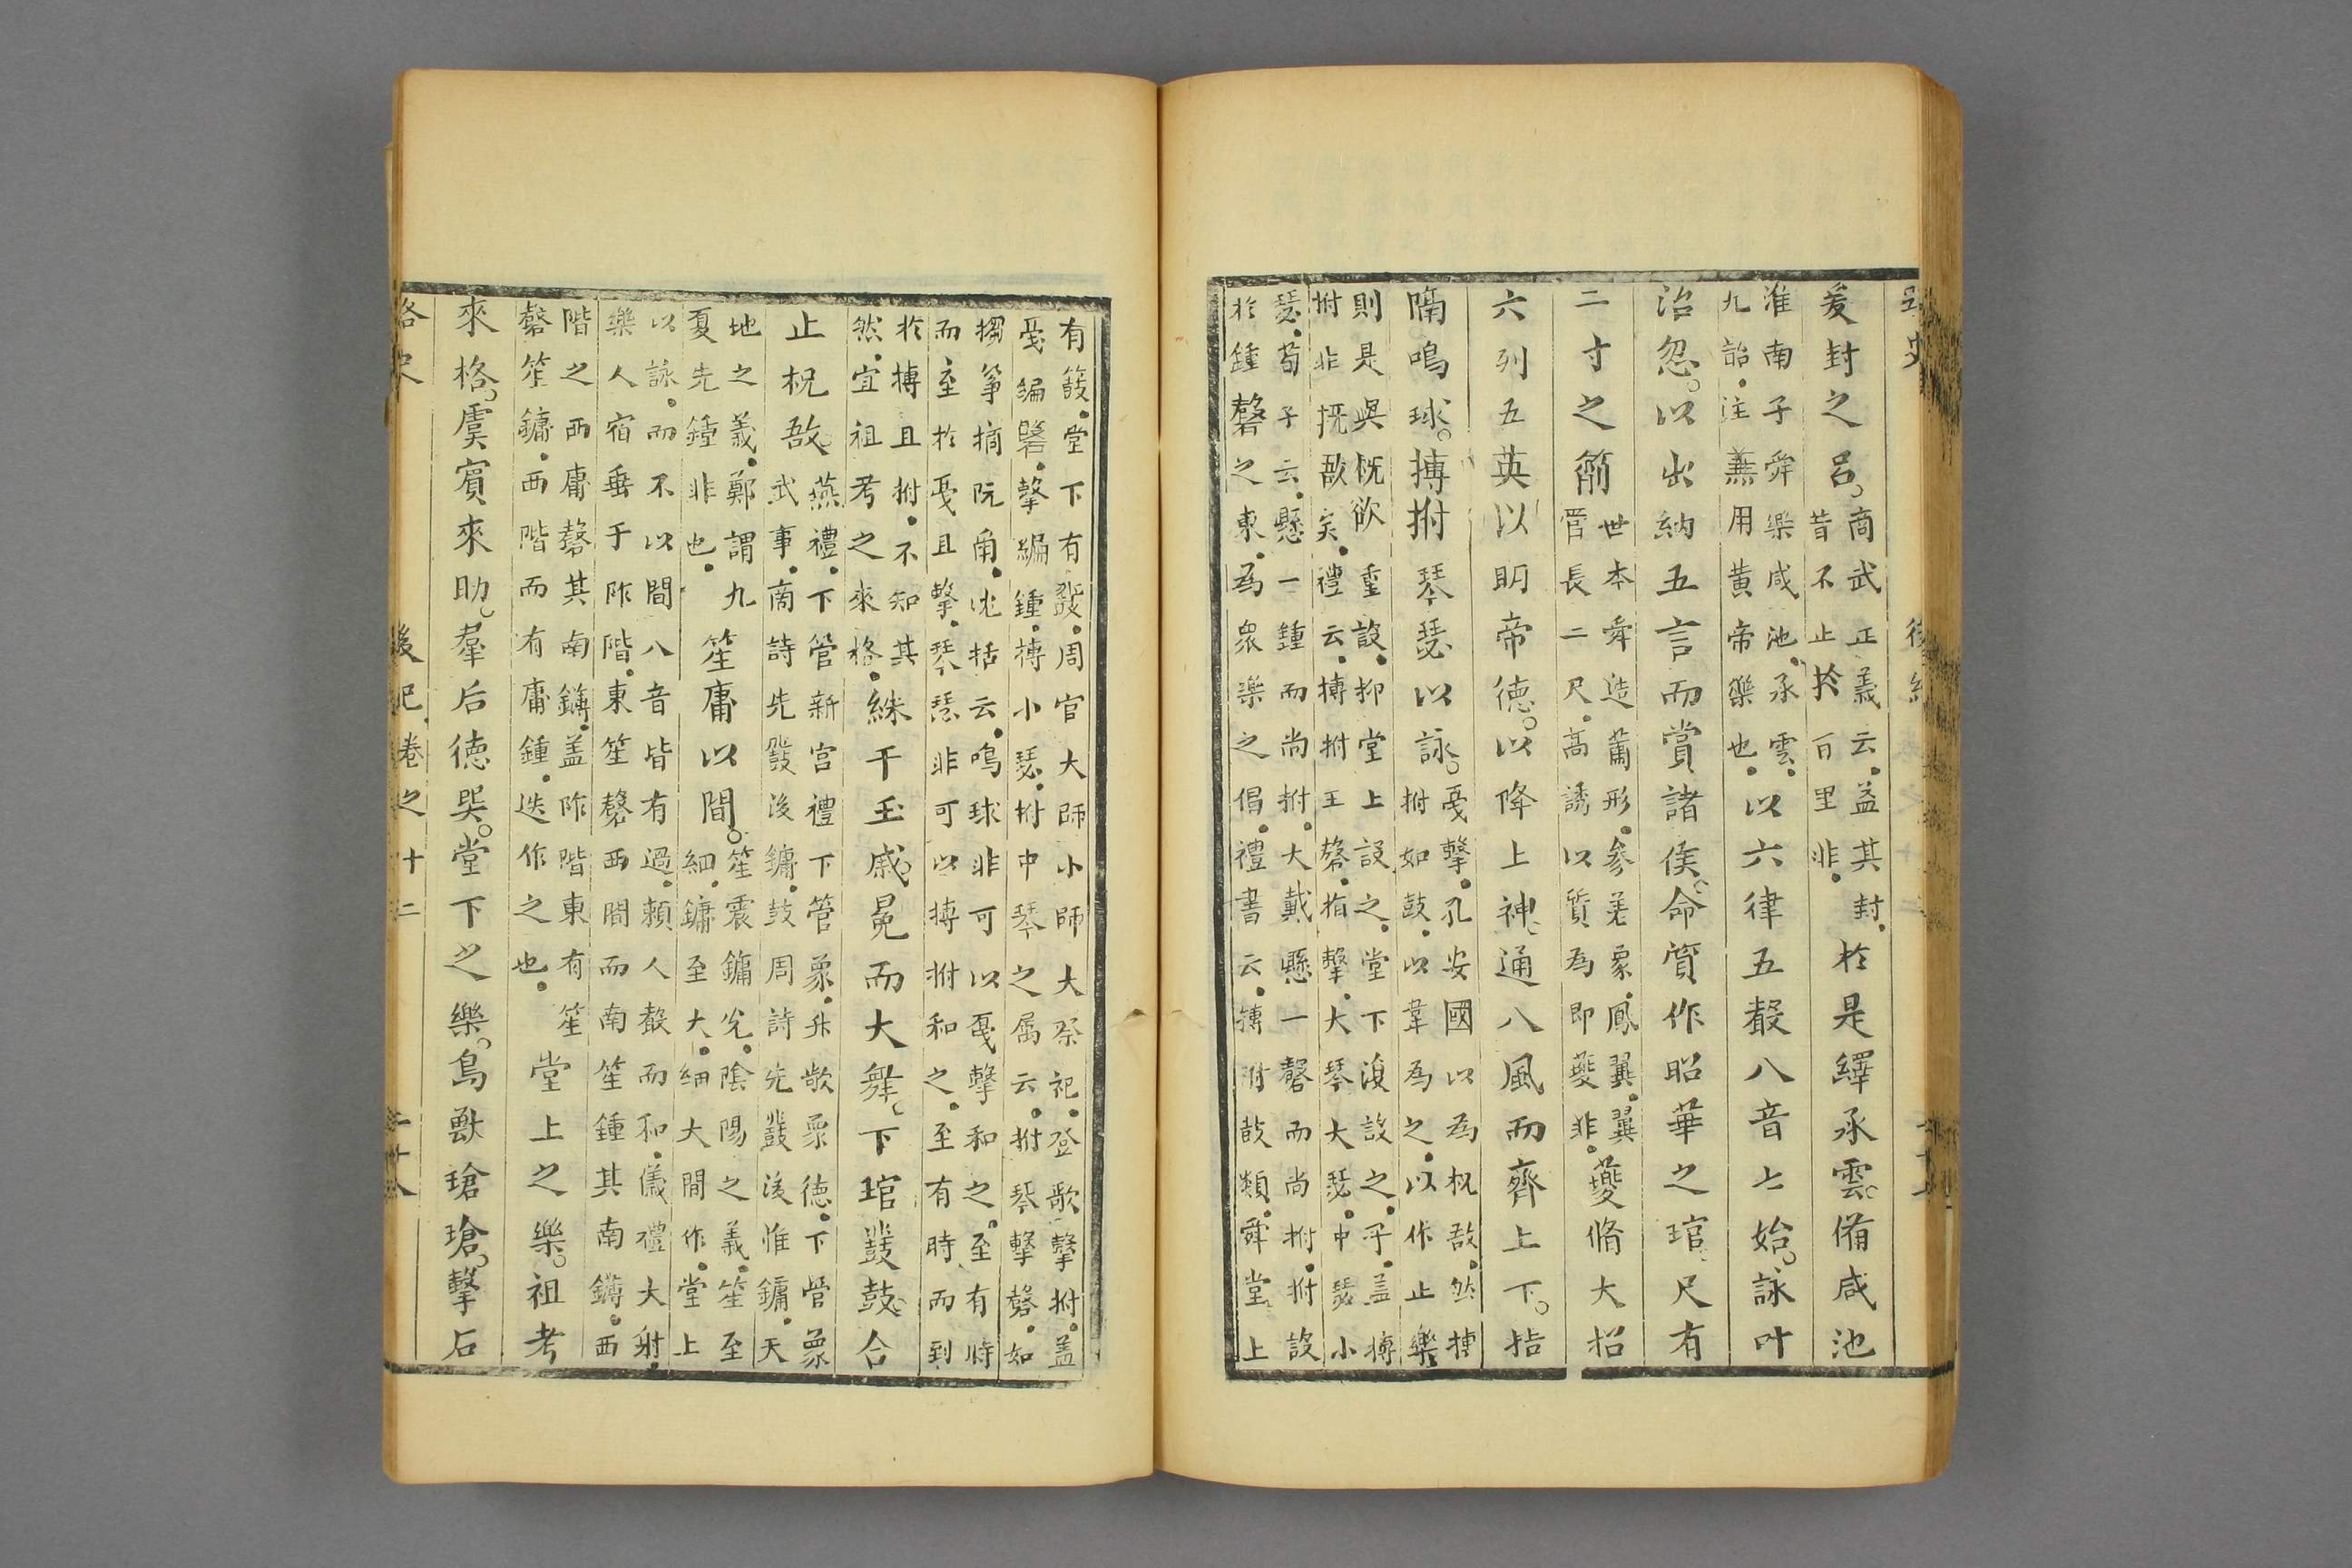 爰封之呂。商武正義云。益其封。昔不止於百里。非。於是繹承雲。俻咸池
淮南子。舜樂咸池。承雲。九韶。注。兼用黄帝樂也。以六律五聲八音七始。詠叶
治忽。以出納五言而賞諸侯。命質作昭華之琯。尺有
二寸之箾世本。舜造簫形。參差象。鳳翼。翼管長二尺。高誘以質為即夔非。夔脩大招
六列五英以明帝德。以降上神。通八風而齊上下。拮
隔鳴球。搏拊琴瑟以詠。戞擊。孔安國以為柷敔。然摶拊如鼓。以韋為之。以作止樂
則是與柷欲重設。抑堂上設之。堂下復設之乎。盖搏
拊非柷敔矣。禮云。搏拊玉磬。指擊。大琴大瑟。中瑟小
瑟。荀子云。懸一鍾而尚拊。大戴懸一磬而尚拊。拊設
於鍾磬之東。為衆樂之倡。禮書云。搏拊鼓類。舜堂上
有鼗。堂下有鼗。周官大師小師大祭祀。登歌擊拊。盖
戞編磬。擊編鍾。搏小瑟。拊中琴之屬云。拊琴擊磬。如
搊箏摘阮甬。沈括云。鳴球非可以戞擊和之。至有時
而至於戞且擊。琴瑟非可以搏拊和之。至有時而到
於搏且拊。不知其然。宜祖考之來格。絑干玉戚。冕而大舞。下琯鼗鼓。合
止柷敔。燕禮。下管新宫禮下管象。升歌象德。下管象武事。商詩先鼗後鏞。鼓周詩先鼗後惟鏞。天
地之義。鄭謂九夏先鍾非也。笙庸以間。笙震鏞兊。陰陽之義。笙至細。鏞至大。細大間作。堂上
以詠。而不以間八音皆有過。頼人聲而和。儀禮大射。
樂人宿垂于阼階。東笙磬西間而南笙鍾其南鑮。西
階之西庸磬其南鑮。盖阼階東有笙磬笙鏞。西階而有庸鍾。迭作之也。堂上之樂。祖考
來格。虞賓來助。羣后徳㒵。堂下之樂。鳥獸瑲瑲。擊石
後紀卷之十二
二十八